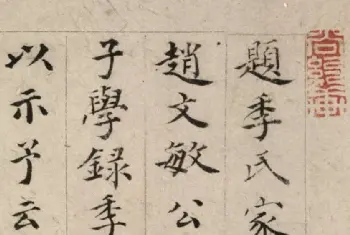 題季氏家
趙文敏公
子學録季
以示予云